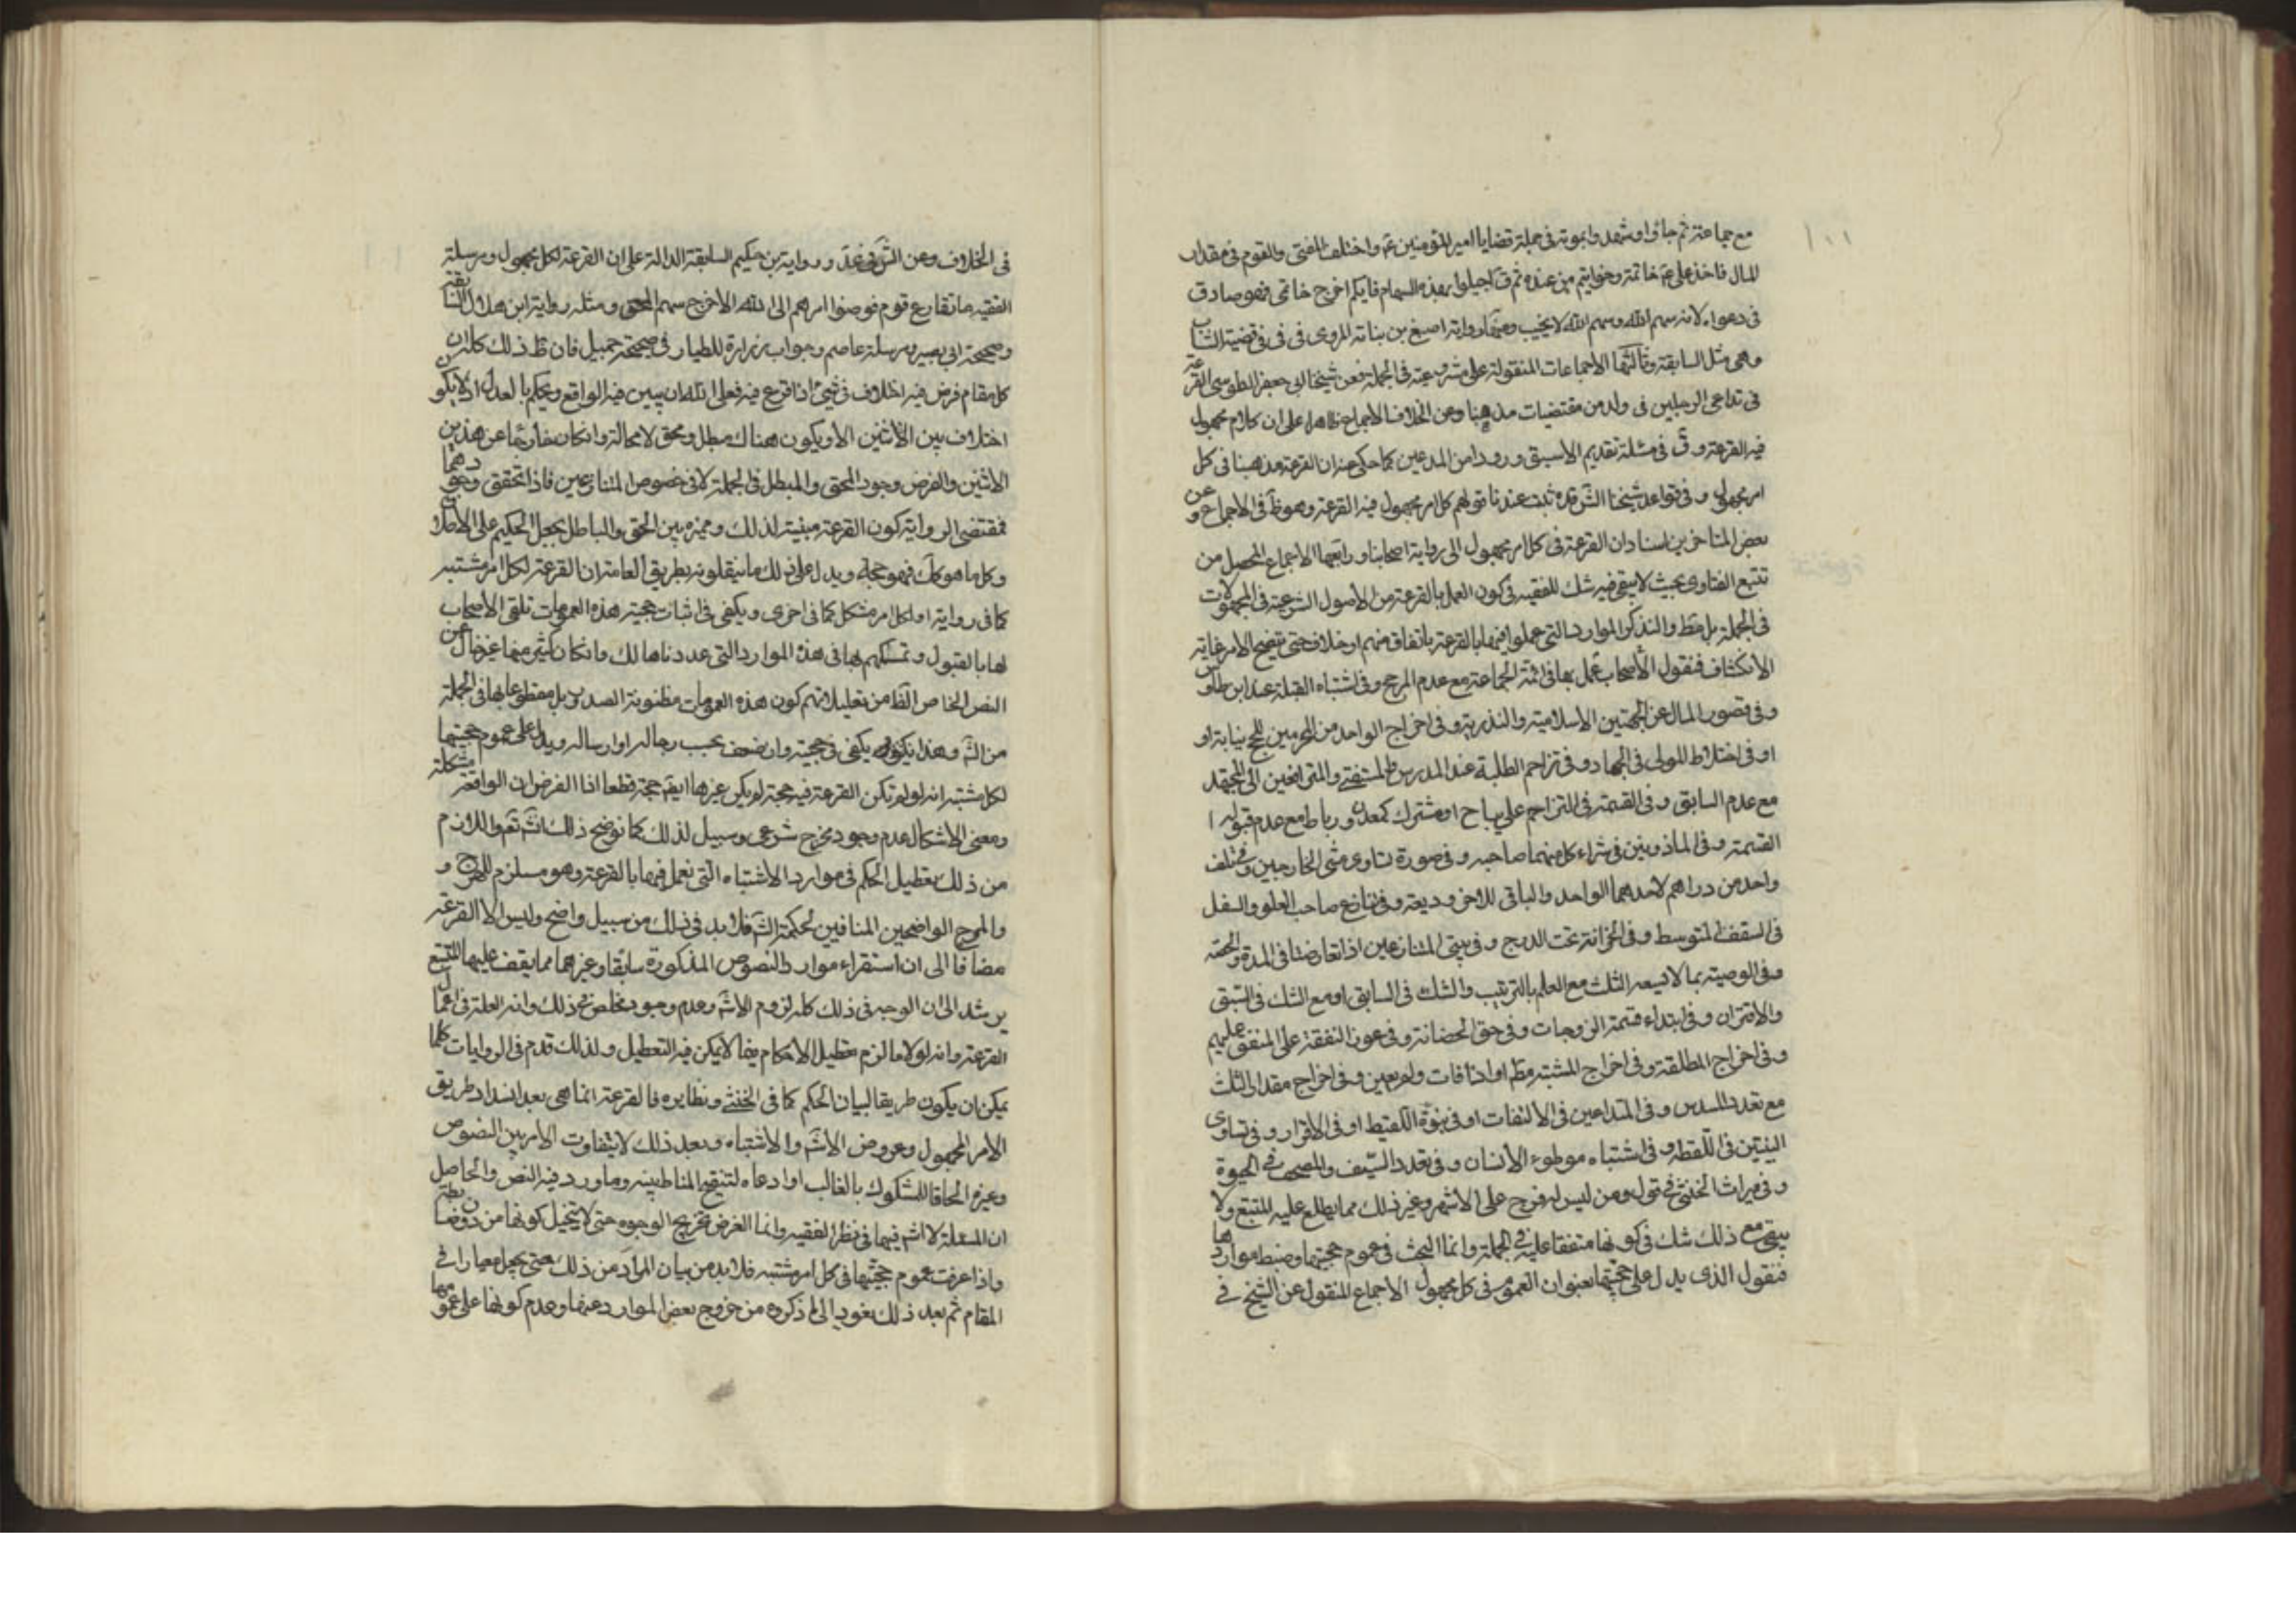 مع جماعة ثم جاؤا وشهدوا بموته فى جملة قضايا امير المؤمنين عم واختلف المفتى والقوم فى مقدار
المال فاخذ على عم خاتمه وخواتيم من عنده ثم ق اجيلوا بهذه السهام فايكم اخرج خاتمى فهو صادق
فى دعواه لانه سهم الله وسهم الله لا يخيب ومنها رواية اصبغ بن بناتة المروى فى فى قضية الشاب
وهى مثل السابقة وثالثها الاجماعات المنقولة على مشروعيته فى الجملة فعن شيخنا ابى جعفر الطوسى القرعة
فى تداعى الرجلين فى ولد من مقتضيات مذهبنا وعن الخلاف الاجماع ظاهرا على ان كل امر مجهول
فيه القرعة و ق فى مسئلة تقديم الاسبق ورودا من المدعين كما حكى عنه ان القرعة مذهبنا فى كل
امر مجهول و فى قواعد شيخنا الش قده ثبت عندنا قولهم كل امر مجهول فيه القرعة وهو ظ فى الاجماع وعن
بعض المتاخرين اسناد ان القرعة فى كل امر مجهول الى رواية اصحابنا ورابعها الاجماع المحصل من
تتبع الفتاوى بحيث لا يبقى فيه شك للفقيه فى كون العمل بالقرعة من الاصول الشرعية فى المجهولات
فى الجملة بل مط ولنذكر الموارد التى عملوا فيها بالقرعة باتفاق منهم او خلاف حتى يتضح الامر غاية
الانكشاف فنقول الاصحاب عمل بها فى ائمة الجماعة مع عدم المرجح وفى اشتباه القبلة عند ابن طاوس
وفى قصور المال عن الحجتين الاسلامية والنذرية وفى اخراج الواحد من المحرمين للحج نيابة او
او فى اختلاط الموتى فى الجهاد وفى تزاحم الطلبة عند المدرس والمستفتى والمترافعين الى المجتهد
مع عدم السابق وفى القسمة فى التزاحم على مباح او مشترك كمعدن ورباط مع عدم قبوله
القسمة وفى الماذونين فى شراء كل منهما صاحبه وفى صورة تساوى مشى الخارجين وفى تلف
واحد من دراهم لاحدهما الواحد والباقى للاخر وديعة وفى تنازع صاحب العلو والسفل
فى السقف المتوسط وفى الخزانة تحت الدرج وفى بينتى المتنازعين اذا تعارضتا فى المدة والحصة
وفى الوصية بما لا يسعه الثلث مع العلم بالترتيب والشك فى السابق او مع الشك فى السبق
والاقتران وفى ابتداء قسمة الزوجات وفى حق الحضانة وفى عوز النفقة على المنفق عليهم
وفى اخراج المطلقة وفى اخراج المشتبه مط او اذا فات ولم يعين وفى اخراج مقدار الثلث
مع تعدد السدس وفى المتداعين فى الالتفات او فى بنوة اللقيط او فى الاقرار و فى تساوى
البينتين فى اللقطة وفى اشتباه موطوء الانسان وفى تعدد السيف والمصحف فى الحبوة
وفى ميراث الخنثى فى قول ومن ليس له فرج على الاشهر وغير ذلك مما يطلع عليه المتتبع ولا
يبقى مع ذلك شك فى كونها متفقا عليه فى الجملة وانما البحث فى عموم حجيتها وضبط مواردها
فنقول الذى يدل على حجيتها بعنوان العموم فى كل مجهول الاجماع المنقول عن الشيخ فى
فى الخلاف وعن الش فى عد ورواية بن حكيم السابقة الدالة على ان القرعة لكل مجهول ومرسلة
الفقيه ما تقارع قوم فوضوا امرهم الى الله الا خرج سهم المحق ومثله رواية ابن هلال السابقة
وصحيحة ابى بصير ومرسلة عاصم وجواب زرارة للطيار فى صحيحة جميل فان ظ ذلك كله ان
كل مقام فرض فيه اختلاف فى شئ اذا اقرع فيه فعلى الله ان يبين فيه الواقع ويحكم بالعدل اذ لا يكون
اختلاف بين الاثنين الا ويكون هناك مبطل ومحق لا محالة وان كان خارجا عن هذين
الاثنين والفرض وجود المحق والمبطل فى الجملة لا فى خصوص المتنازعين فاذا تحقق وجودهما
فمقتضى الرواية كون القرعة مبينة لذلك ومميزه بين الحق والباطل بجعل الحكيم على الاطلاق
وكل ما هو كك فهو حجة ويدل على ذلك ما ينقلونه بطريق العامة ان القرعة لكل امر مشتبه
كما فى رواية او لكل امر مشكل كما فى اخرى ويكفى فى اثبات حجية هذه العمومات تلقى الاصحاب
لها بالقبول وتمسكهم بها فى هذه الموارد التى عددناها لك وان كان كثير منها غير خال عن
النص الخاص الظ من تعليلاتهم كون هذه العمومات مظنونة الصدور بل مقطوعا بها فى الجملة
من الش وهذا يكفى فى حجيته وان ضعف بحسب رجاله او ارساله ويدل على عموم حجيتها
لكل مشتبه انه لو لم تكن القرعة فيه حجة لم يكن غيرها ايضا حجة قطعا اذا الفرض ان الواقعة مشكلة
ومعنى الاشكال عدم وجود مخرج شرعى وسبيل لذلك كما نوضح ذلك انش تع واللازم
من ذلك تعطيل الحكم فى موارد الاشتباه التى نعمل فيها بالقرعة وهو مستلزم للهرج و
والمرج الواضحين المنافيين لحكمة الش فلا بد فى ذلك من سبيل واضح وليس الا القرعة
مضافا الى ان استقراء موارد النصوص المذكورة سابقا وغيرهما مما يقف عليها المتتبع
يرشد الى ان الوجه فى ذلك كله لزوم الاش وعدم وجود مخلص فى ذلك وانه العلة فى اعمال
القرعة وانه لولاها لزم تعطيل الاحكام فيما لا يمكن فيه التعطيل ولذلك قدم فى الروايات كلما
يمكن ان يكون طريقا لبيان الحكم كما فى الخنثى ونظايره فالقرعة انما هى بعد انسداد طريق
الامر المجهول وعروض الاش والاشتباه وبعد ذلك لا يتفاوت الامر بين النصوص
وغيره الحاقا للشكوك بالغالب او ادعاء لتنقيح المناط بينه وما ورد فيه النص والحاصل
ان المسئلة لا اش فيها فى نظر الفقيه وانما الغرض تخريج الوجوه حتى لا يتخيل كونها من دون ضابطة
واذا عرفت عموم حجيتها فى كل امر مشتبه فلا بد من بيان المراد من ذلك حتى يجعل معيارا فى
المقام ثم بعد ذلك نعود الى ما ذكروه من خروج بعض الموارد عنها وعدم كونها على عمومها